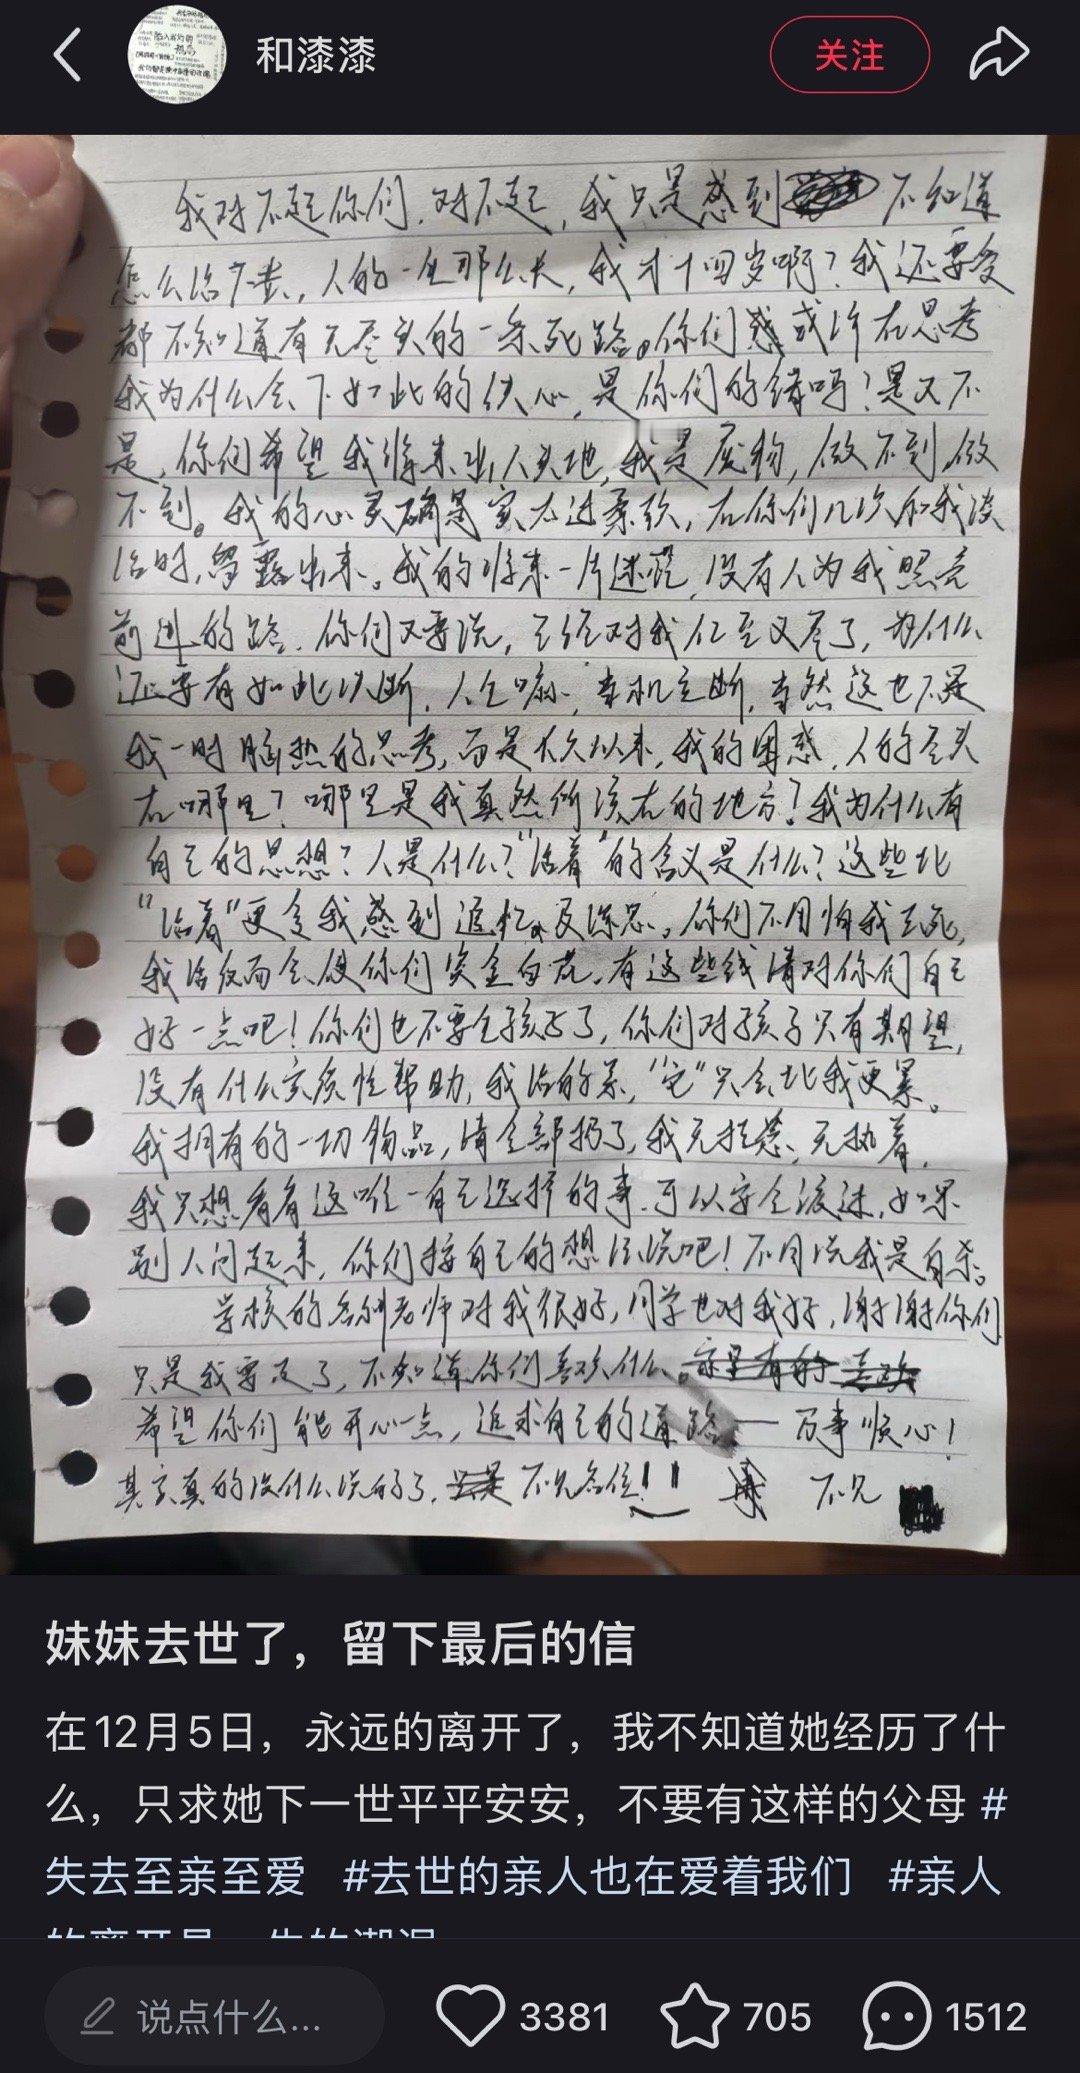 和漆漆
关注
我对不起你们，对不起，我只是感到 不知道
怎么活下去，人的一生那么长，我才十四岁啊？我还要受
都不知道有无尽头的一条死路。你们或许在思考
我为什么会下如此的决心，是你们的错吗？是又不
是，你们希望我将来出人头地，我是废物，做不到，做
不到。我的心灵确是实太过柔软，在你们几次和我谈
话时，留露出来。我的将来一片迷茫，没有人为我照亮
前进的路，你们又要说，已经对我仁至义尽了，为什么
还要有如此决断，人生嘛，当机立断，当然这也不是
我一时脑热的思考，而是太久以来，我的困惑，人的尽头
在哪里？哪里是我真然所该在的地方？我为什么有
自己的思想？人是什么？“活着”的含义是什么？这些比
“活着”更令我感到追忆及深思。你们不用怕我去死，
我活反而会使你们资金白花，有这些钱请对你们自己
好一点吧！你们也不要生孩子了，你们对孩子只有期望，
没有什么实质性帮助，我活的累，“它”只会比我更累。
我拥有的一切物品，请全部扔了，我无挂念、无执着，
我只想看看这唯一自己选择的事，可以安全渡过，如果
别人问起来，你们按自己的想法说吧！不用说我是自杀。
学校的各别老师对我很好，同学也对我好，谢谢你们
只是我要走了，不知道你们喜欢什么。
希望你们能开心一点，追求自己的道路——万事顺心！
其实真的没什么说的了，不见各位！！ 不见
妹妹去世了，留下最后的信
在12月5日，永远的离开了，我不知道她经历了什
么，只求她下一世平平安安，不要有这样的父母 #
失去至亲至爱 #去世的亲人也在爱着我们 #亲人
说点什么... 3381 705 1512